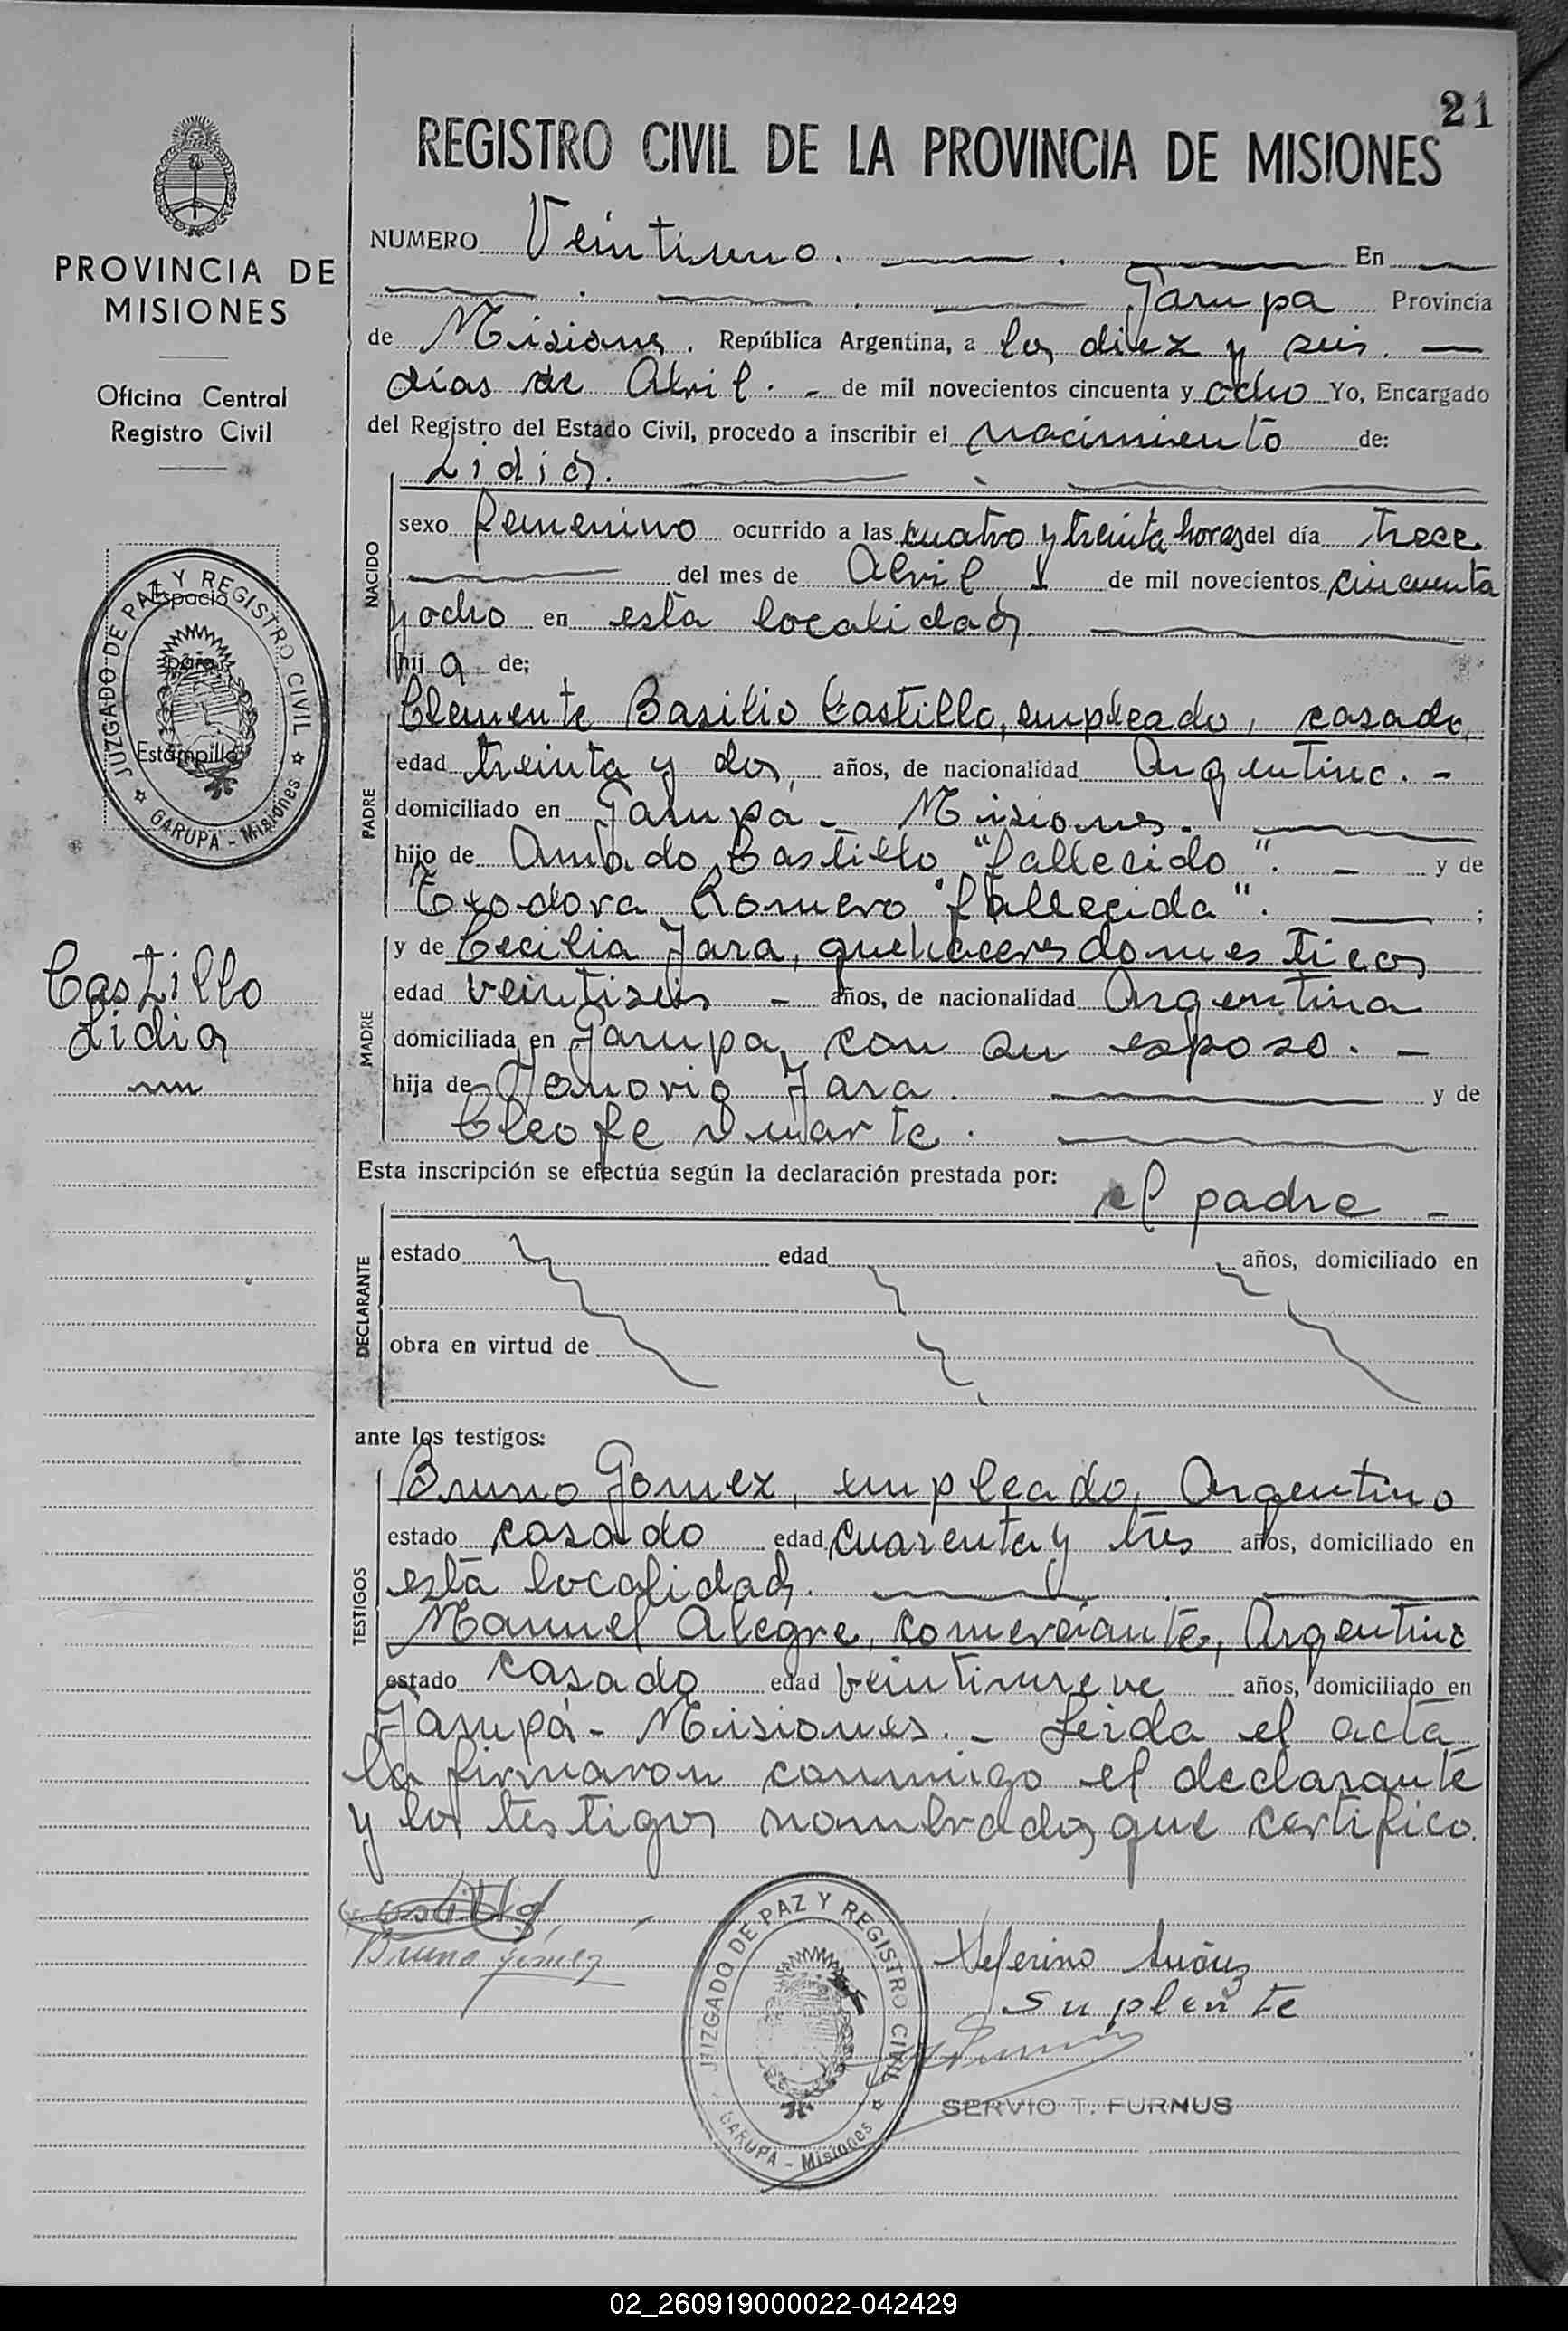 21
REGISTRO CIVIL DE LA PROVINCIA DE MISIONES
PROVINCIA DE
MISIONES
Oficina Central
Registro Civil
JUZGADO DE PAZ Y REGISTRO CIVIL
GARUPA - Misiones
Espacio
para
Estampilla
Castillo
Lidia
NUMERO Veintiuno. En
Garupa Provincia
de Misiones. República Argentina, a los diez y seis.
días de Abril. - de mil novecientos cincuenta y ocho Yo, Encargado
del Registro del Estado Civil, procedo a inscribir el nacimiento de:
Lidia.
NACIDO
sexo femenino ocurrido a las cuatro y treinta horas del día trece
del mes de Abril de mil novecientos cincuenta
y ocho en esta localidad
hij a de:
PADRE
Clemente Basilio Castillo, empleado, casado,
edad treinta y dos, años, de nacionalidad Argentino. -
domiciliado en Garupá - Misiones.
hijo de Amado Castillo "fallecido". - y de
Teodora Romero "fallecida". ;
MADRE
y de Cecilia Jara, quehaceres domesticos
edad veintiseis - años, de nacionalidad Argentina
domiciliada en Garupa, con su esposo. -
hija de Jara. y de
Cleofe Duarte.
Esta inscripción se efectúa según la declaración prestada por:
el padre -
DECLARANTE
estado edad años, domiciliado en
obra en virtud de
ante los testigos:
TESTIGOS
Bruno Gomez, empleado, Argentino
estado casado edad cuarenta y tres años, domiciliado en
esta localidad.
Manuel Alegre, comerciante, Argentino
estado casado edad veintinueve años, domiciliado en
Garupá - Misiones. - Leida el acta
la firmaron conmigo el declarante
y los testigos nombrados que certifico.
Castillo
Bruno Gómez
JUZGADO DE PAZ Y REGISTRO CIVIL
GARUPA - Misiones
Suplente
SERVIO T. FURNUS
02_260919000022-042429